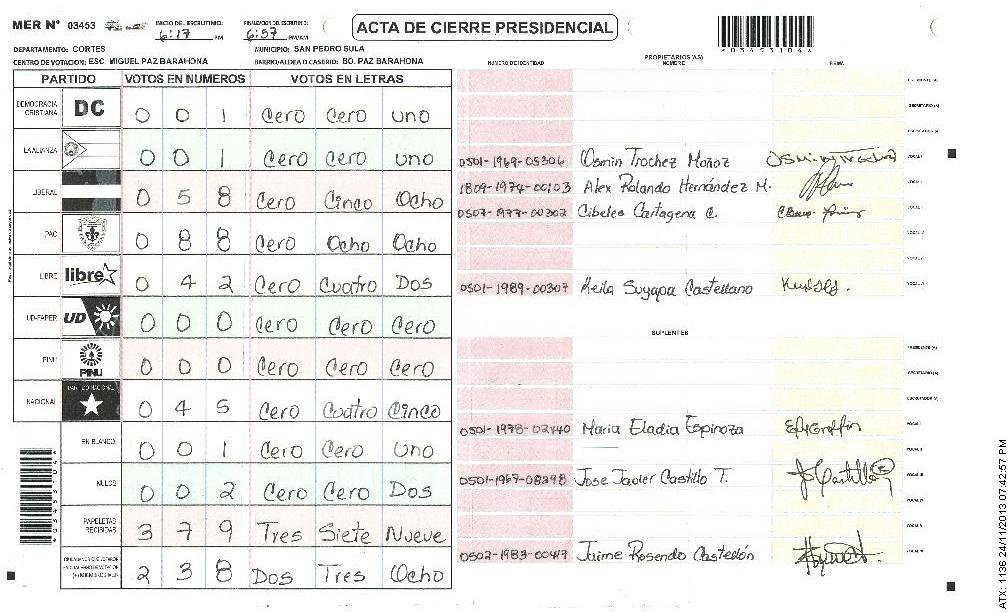 MER N° 03453 INICIO DEL ESCRUTINIO: 6:17 PM FINALIZACION DEL ESCRUTINIO: 6:57 PM/AM
ACTA DE CIERRE PRESIDENCIAL
DEPARTAMENTO: CORTES MUNICIPIO: SAN PEDRO SULA
CENTRO DE VOTACION: ESC. MIGUEL PAZ BARAHONA BARRIO/ALDEA O CASERIO: BO. PAZ BARAHONA
PARTIDO VOTOS EN NUMEROS VOTOS EN LETRAS
DEMOCRACIA CRISTIANA DC 0 0 1 Cero Cero uno
LA ALIANZA 0 0 1 Cero Cero uno
LIBERAL 0 5 8 Cero Cinco Ocho
PAC 0 8 8 Cero Ocho Ocho
LIBRE libre 0 4 2 Cero Cuatro Dos
UD-FAPER UD 0 0 0 Cero Cero Cero
PINU PINU 0 0 0 Cero Cero Cero
NACIONAL PARTIDO NACIONAL 0 4 5 Cero Cuatro Cinco
EN BLANCO 0 0 1 Cero Cero Uno
NULOS 0 0 2 Cero Cero Dos
PAPELETAS RECIBIDAS 3 7 9 Tres Siete Nueve
2 3 8 Dos Tres Ocho
PROPIETARIOS (AS)
NUMERO DE IDENTIDAD NOMBRE FIRMA
SECRETARIO (A)
0501-1969-05306 Osmin Trochez Muñoz
1809-1974-00103 Alex Rolando Hernández M.
0507-1977-00302 Cibeles Cartagena C.
0501-1989-00307 Keila Suyapa Castellano
SUPLENTES
PRESIDENTE (A)
SECRETARIO (A)
ESCRUTADOR (A)
0501-1978-02440 Maria Eladia Espinoza
0501-1967-08298 Jose Javier Castillo T.
0502-1983-00417 Jaime Rosendo Castellón
*03453104*
ATX: 1136 24/11/2013 07:42:57 PM